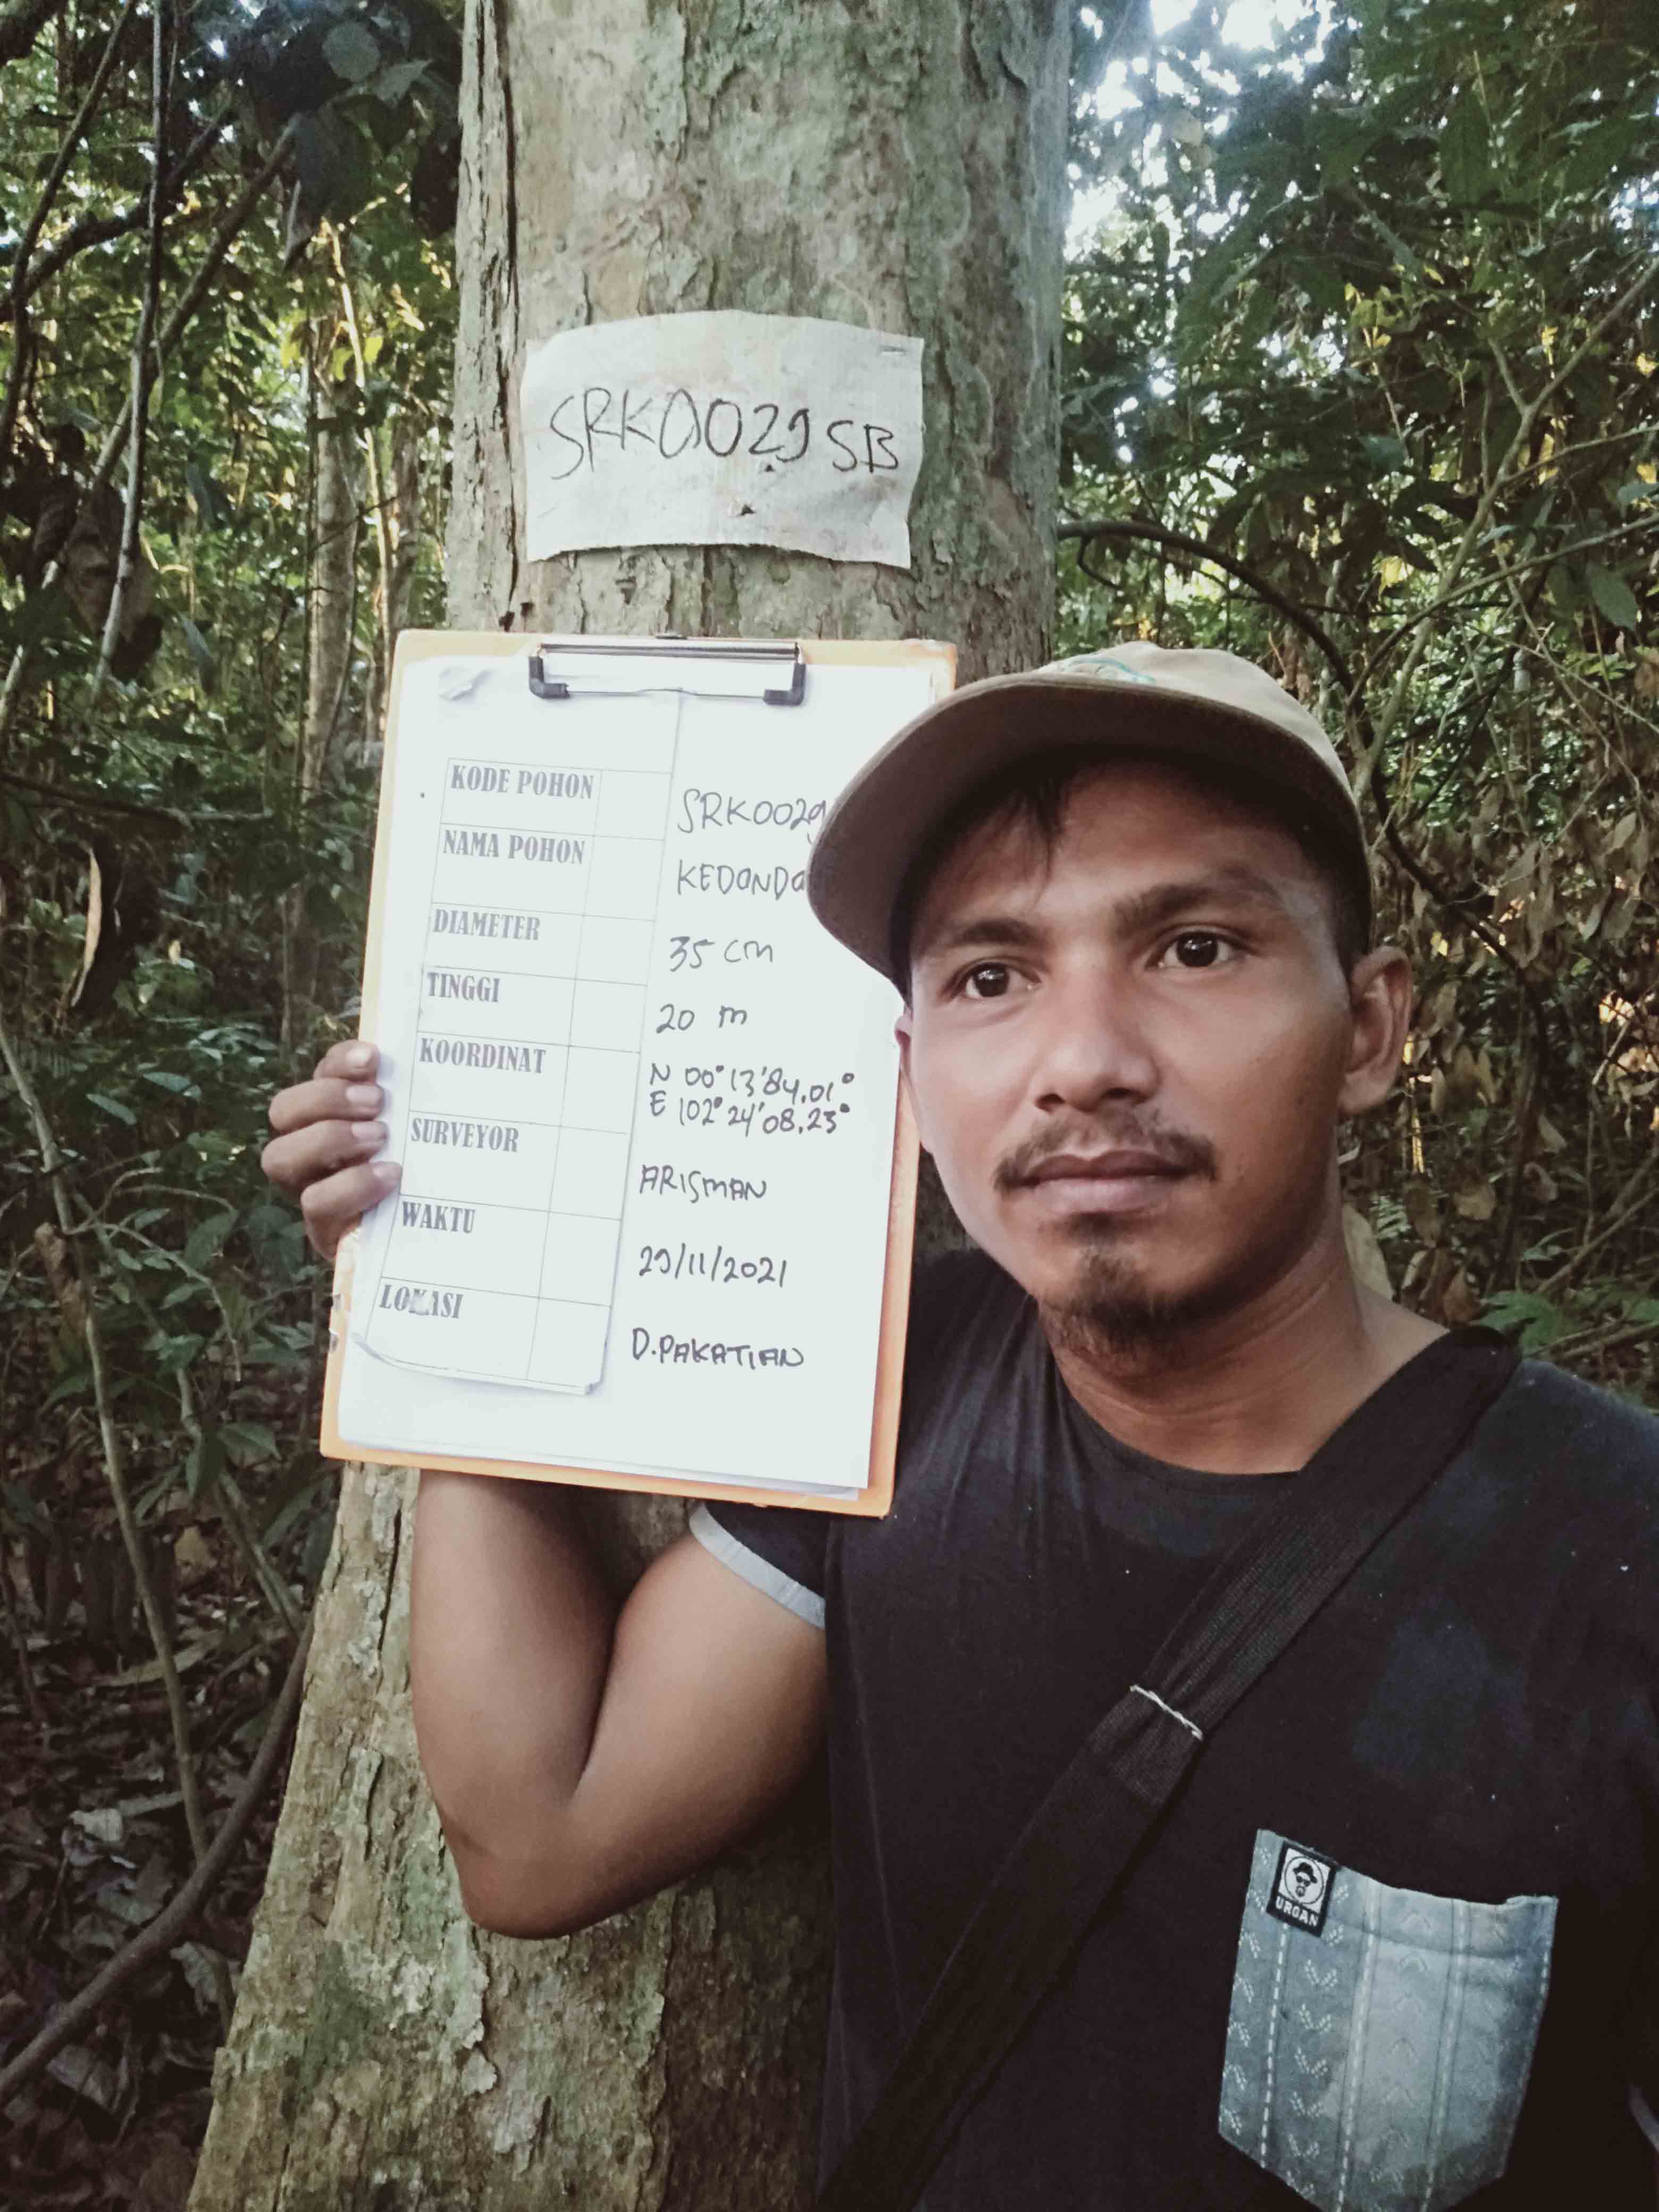 SRK0029 SB
KODE POHON SRK0029
NAMA POHON
DIAMETER 35 cm
TINGGI 20 m
KOORDINAT N 00° 13' 84.01°
E 102° 24' 08.23°
SURVEYOR ARISMAN
WAKTU 29/11/2021
LOKASI D.PAKATIAN
URGAN